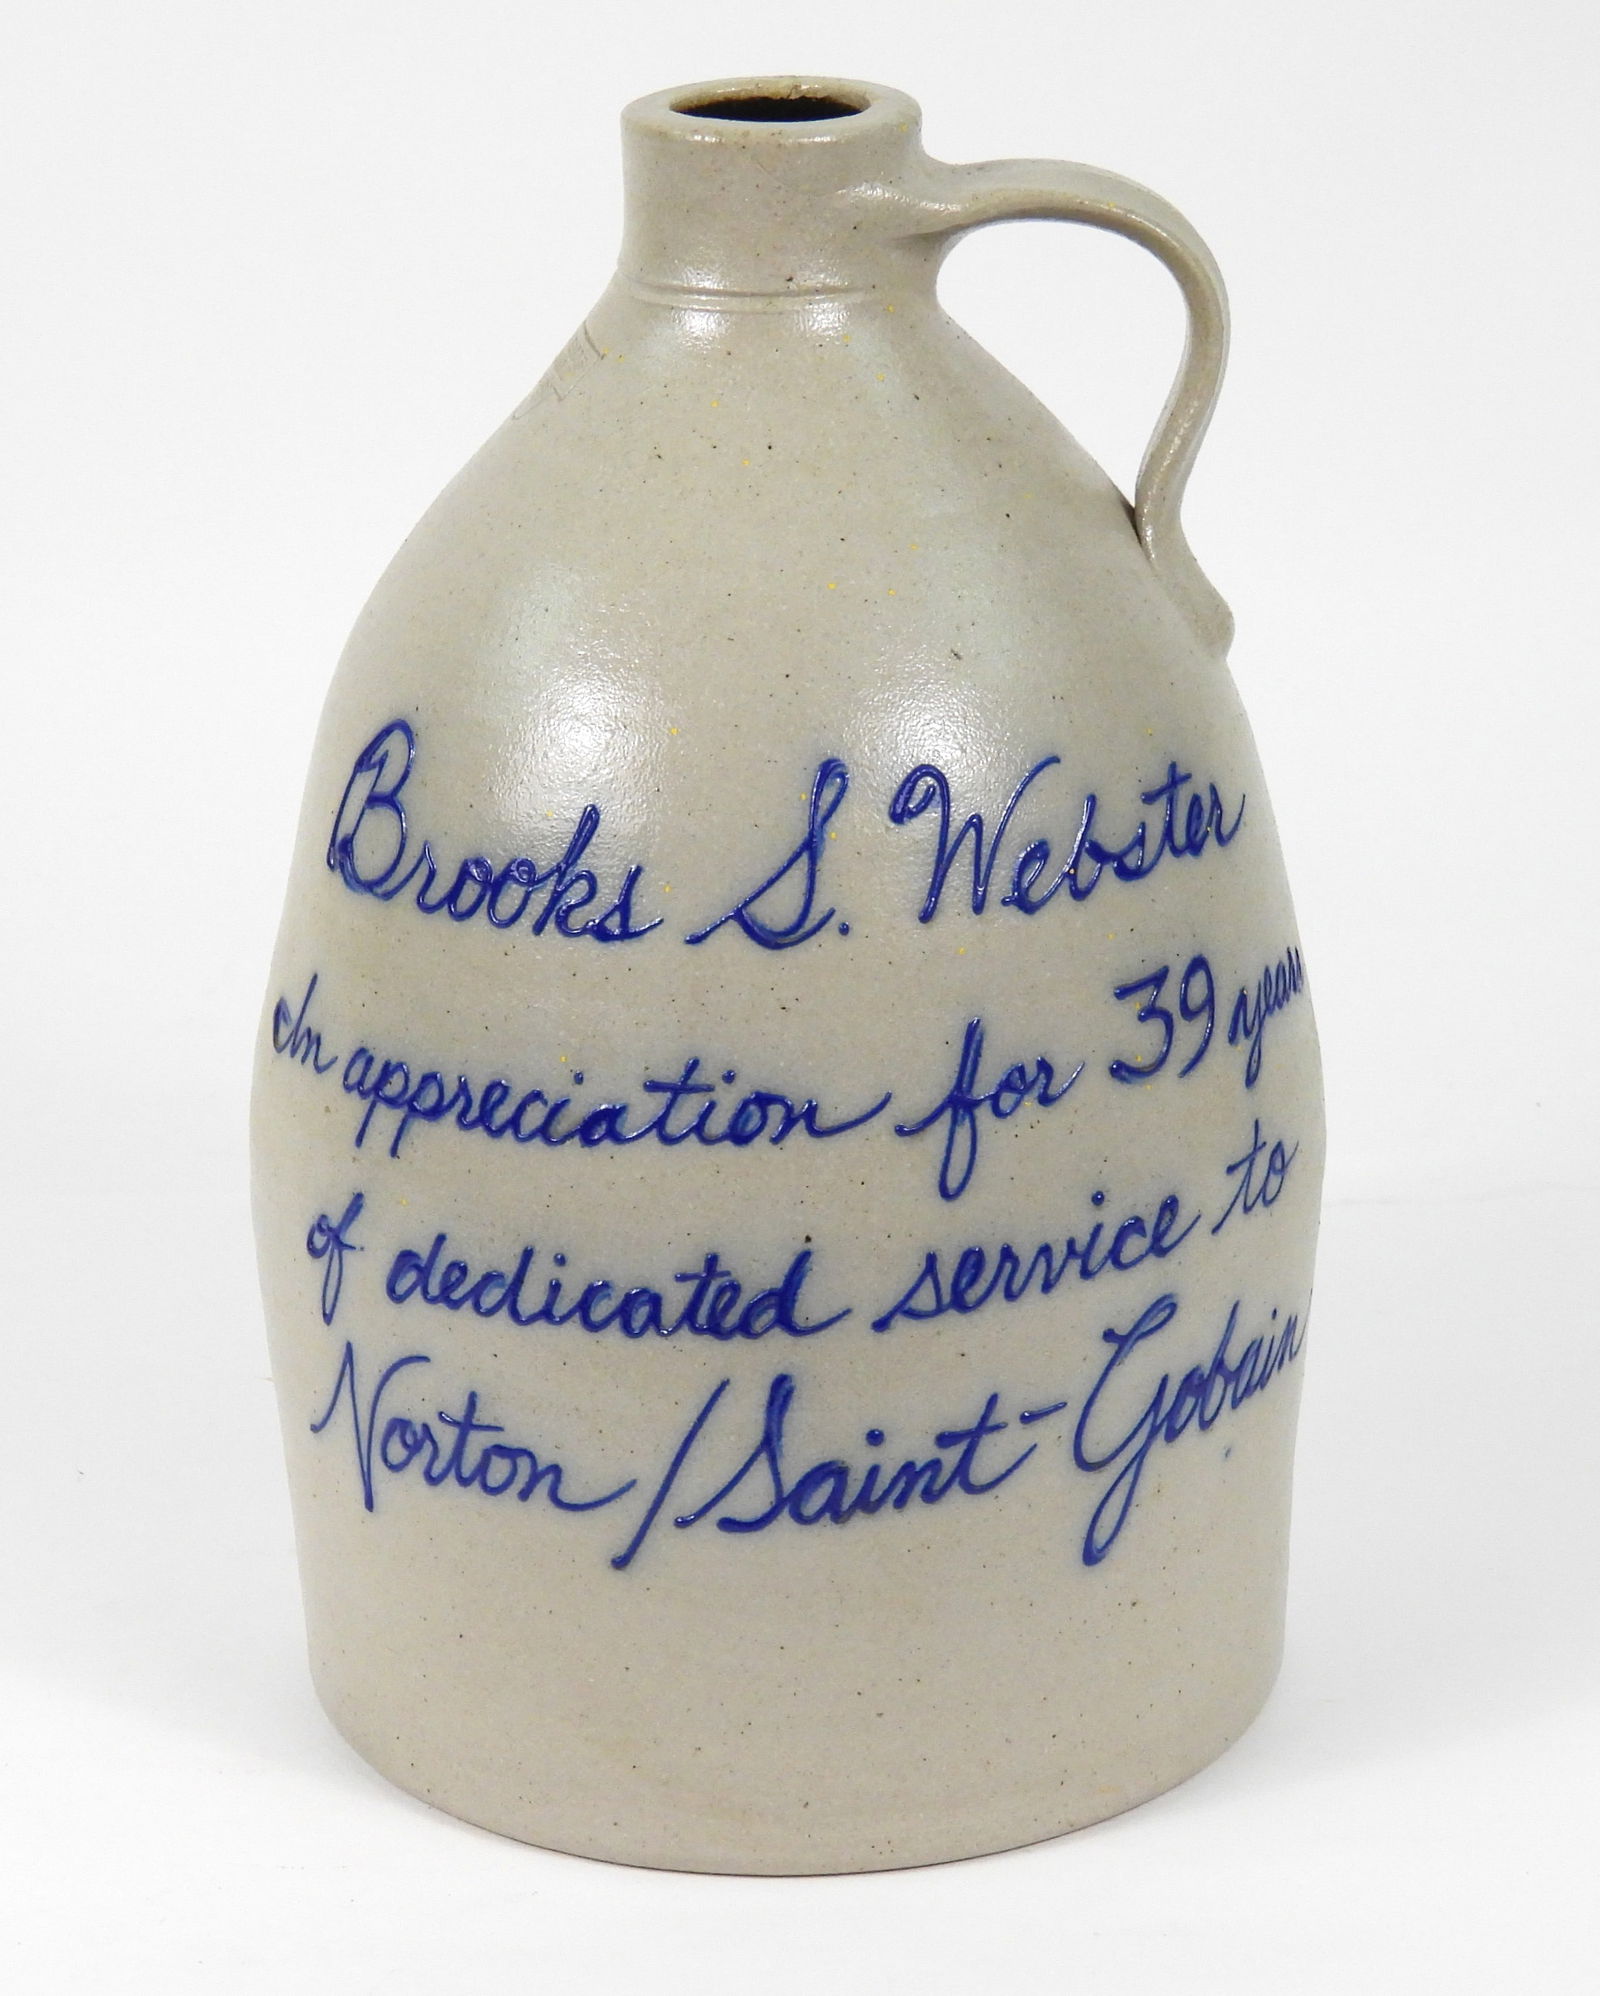 Brooks S. Webster
In appreciation for 39 years
of dedicated service to
Norton/Saint-Gobain